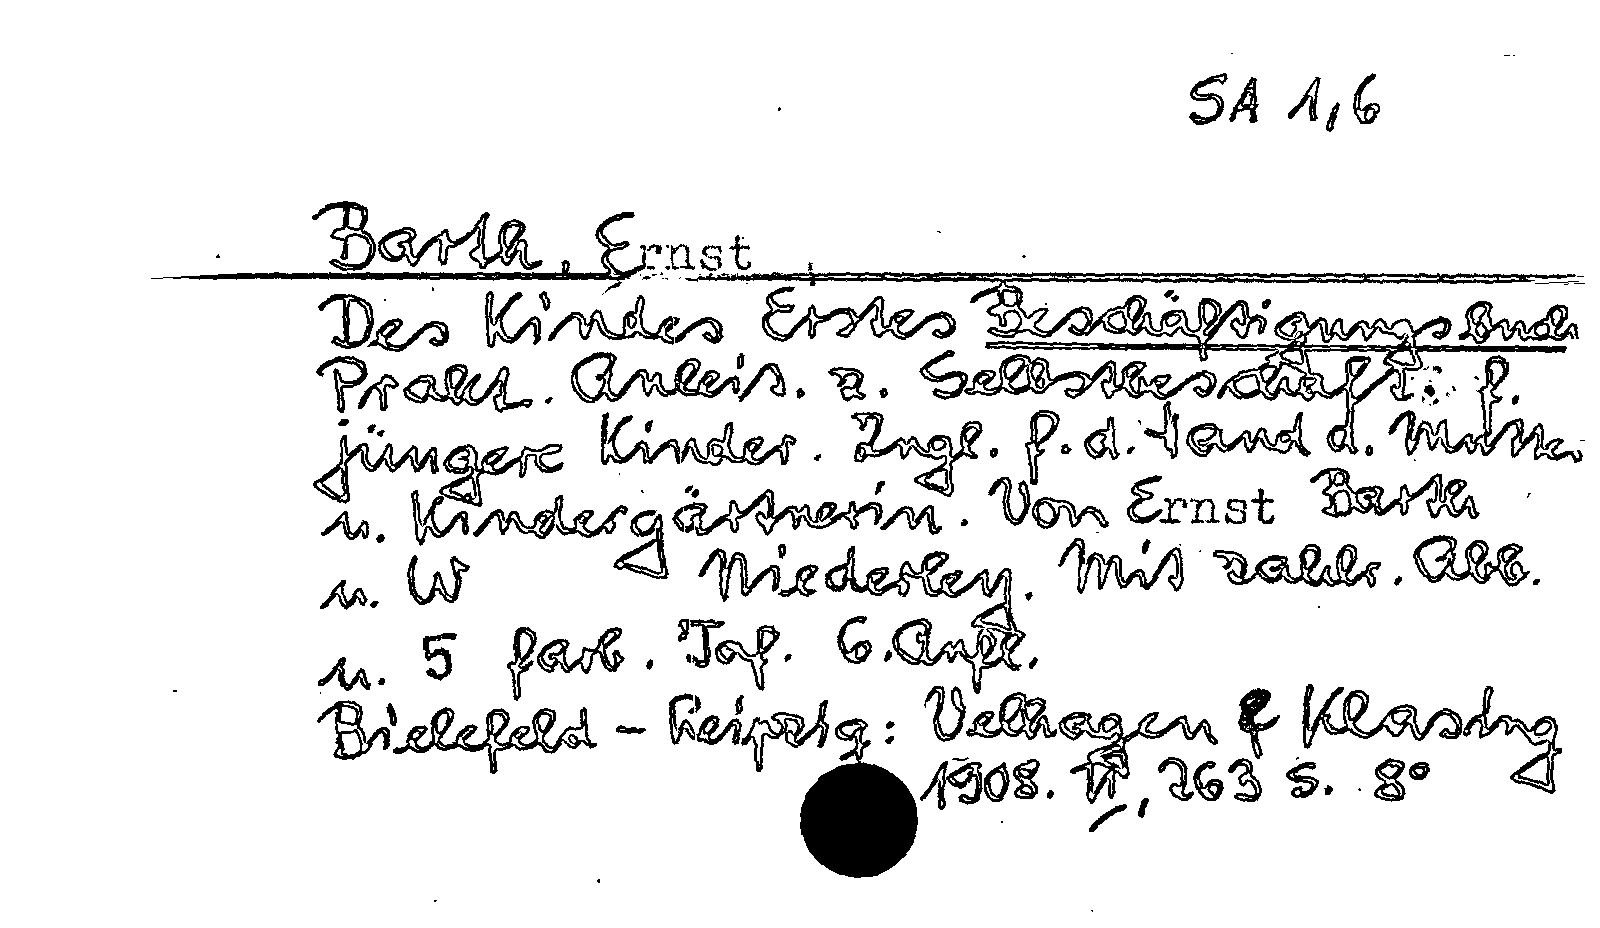 SA 1,6
Barth, Ernst
Des Kindes Erstes Beschäftigungsbuch
Prakt. Anleit. z. Selbstbeschäft. f.
jüngere Kinder. Zugl. f. d. Hand d. Mutter
u. Kindergärtnerin. Von Ernst Barth
u. W Niederley. Mit zahlr. Abb.
u. 5 farb. Taf. 6. Aufl.
Bielefeld - Leipzig: Velhagen & Klasing
1908. VI, 263 S. 8°